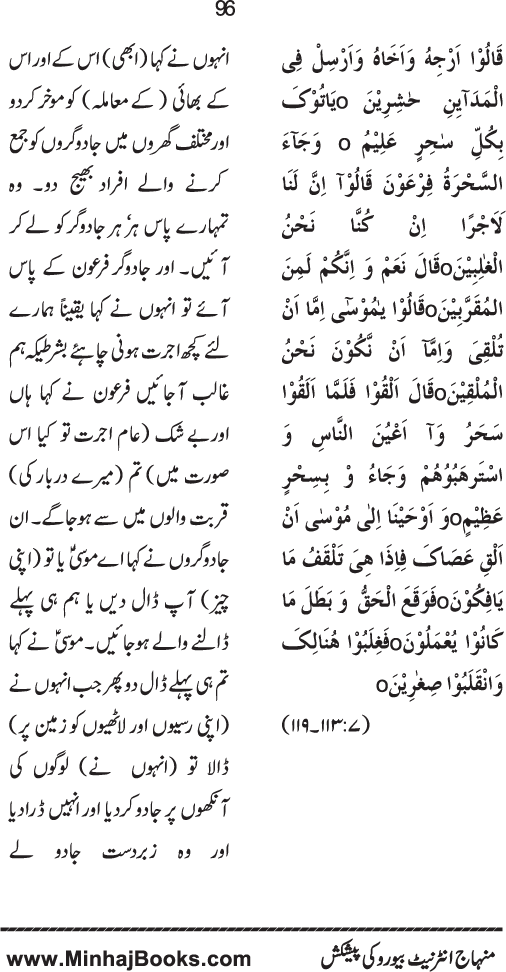 96
قَالُوْا اَرْجِهْ وَاَخَاهُ وَاَرْسِلْ فِی
الْمَدَآىِٕنِ حٰشِرِیْنَ o یَاتُوْکَ
بِکُلِّ سٰحِرٍ عَلِیْمٍ o وَ جَآءَ
السَّحْرَةُ فِرْعَوْنَ قَالُوْآ اِنَّ لَنَا
لَاَجْرًا اِنْ کُنَّا نَحْنُ
الْغٰلِبِیْنَo قَالَ نَعَمْ وَ اِنَّکُمْ لَمِنَ
المُقَرَّبِیْنَo قَالُوْا یٰمُوْسٰٓی اِمَّا اَنْ
تُلْقِیَ وَاِمَّآ اَنْ نَّکُوْنَ نَحْنُ
الْمُلْقِیْنَo قَالَ اَلْقُوْا فَلَمَّا اَلقَوْا
سَحَرُ وَآ اَعْیُنَ النَّاسِ وَ
اسْتَرهَبُوْهُمْ وَجَاءُ وْ بِسِحْرٍ
عَظِیْمٍo وَ اَوْحَیْنَا اِلٰی مُوْسٰی اَنْ
اَلْقِ عَصَاکَ فَاِذَا هِیَ تَلْقَفُ مَا
یَافِکُوْنَo فَوَقَعَ الْحَقُّ وَ بَطَلَ مَا
کَانُوْا یُعْمَلُوْنَo فَغِلَبُوْا هُنَالِکَ
وَانْقَلَبُوْا صٰغِرِیْنَo
(۷:۱۱۳۔۱۱۹)
انہوں نے کہا (ابھی) اس کے اور اس
کے بھائی (کے معاملہ) کو مؤخر کردو
اور مختلف گھروں میں جادوگروں کو جمع
کرنے والے افراد بھیج دو۔ وہ
تمہارے پاس ہر ہر جادوگر کو لے کر
آئیں۔ اور جادوگر فرعون کے پاس
آئے تو انہوں نے کہا یقیناً ہمارے
لئے کچھ اجرت ہونی چاہئے بشرطیکہ ہم
غالب آجائیں فرعون نے کہا ہاں
اور بے شک (عام اجرت تو کیا اس
صورت میں) تم (میرے دربار کی)
قربت والوں میں سے ہوجاگے۔ ان
جادوگروں نے کہا اے موسیٰؑ یا تو (اپنی
چیز) آپ ڈال دیں یا ہم ہی پہلے
ڈالنے والے ہوجائیں۔ موسیٰؑ نے کہا
تم ہی پہلے ڈال دو پھر جب انہوں نے
(اپنی رسیوں اور لاٹھیوں کو زمین پر)
ڈالا تو (انہوں نے) لوگوں کی
آنکھوں پر جادو کردیا اور انہیں ڈرا دیا
اور وہ زبردست جادو لے
منہاج انٹرنیٹ بیورو کی پیشکش
www.MinhajBooks.com